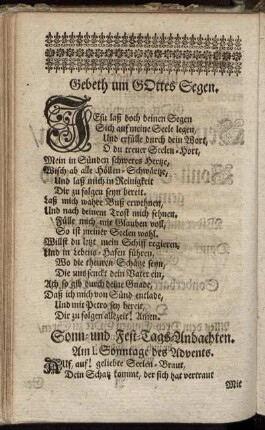 Gebeth um GOttes Segen.
JEsu laß doch deinen Segen
Sich auf meine Seele legen,
Und erfülle durch dein Wort,
O du treuer Seelen-Hort,
Mein in Sünden schweres Hertze,
Wisch ab alle Höllen-Schwärtze,
Und laß mich in Reinigkeit
Dir zu folgen seyn bereit.
Laß mich wahre Buß erwehnen,
Und nach deinem Trost mich sehnen,
Fülle mich mit Glauben voll,
So ist meiner Seelen wohl.
Willst du jetzt mein Schiff regieren,
Und in Lebens-Hafen führen,
Wo die theuren Schätze seyn,
Die uns senckt dein Vater ein,
Ach so gib durch deine Gnade,
Daß ich mich von Sünd entlade,
Und mit Petro sey bereit,
Dir zu folgen allezeit! Amen.
Sonn- und Fest-Tags-Andachten.
Am I. Sonntage des Advents.
AUf, auf! geliebte Seelen-Braut,
Dein Schatz kommt, der sich hat vertraut
Mit